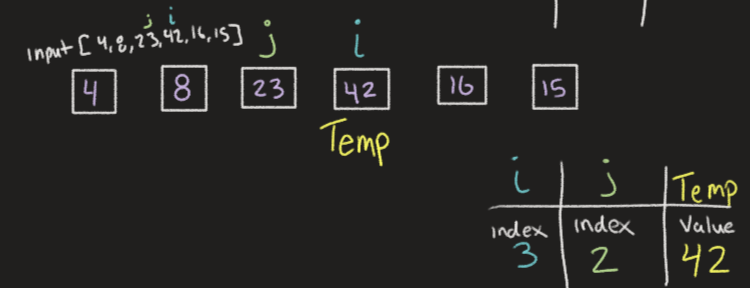 j i
input [4,8,23,42,16,15] j i
4 8 23 42 16 15
Temp
i j Temp
index index Value
3 2 42